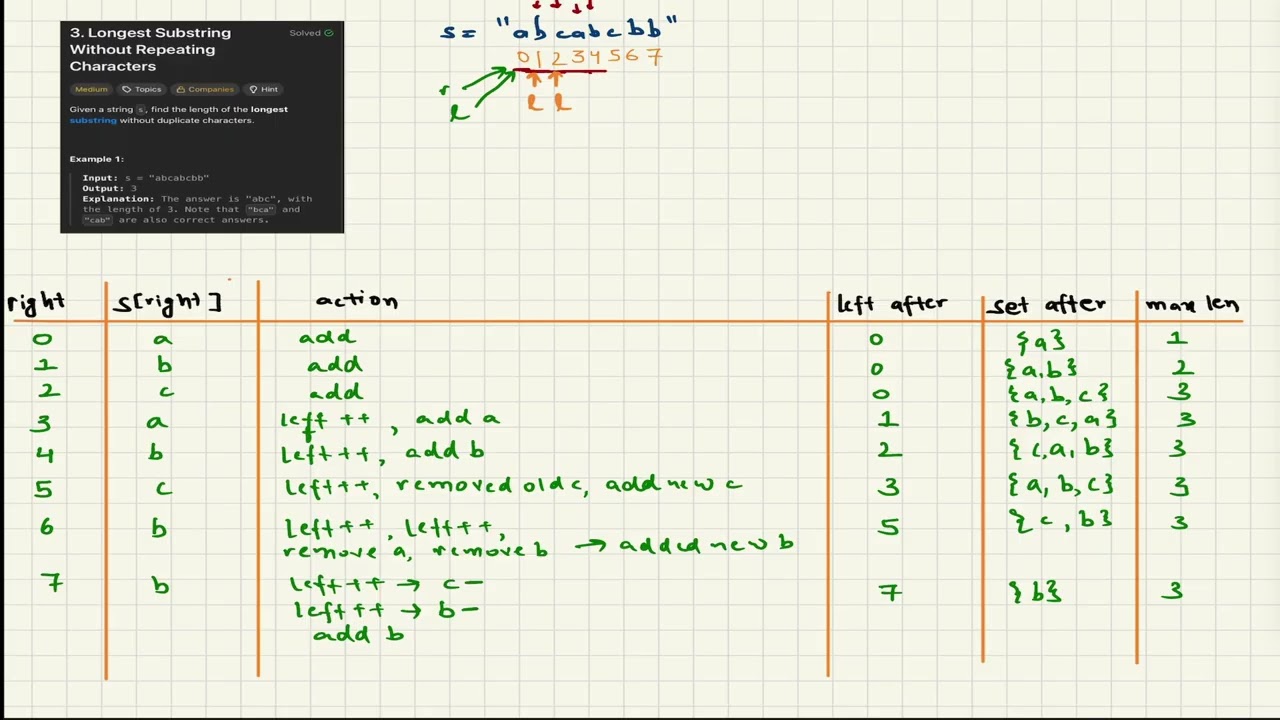 3. Longest Substring Without Repeating Characters
Solved
Medium Topics Companies Hint
Given a string s, find the length of the longest
substring without duplicate characters.
Example 1:
Input: s = "abcabcbb"
Output: 3
Explanation: The answer is "abc", with
the length of 3. Note that "bca" and
"cab" are also correct answers.
s = "abcabcbb"
0 1 2 3 4 5 6 7
r
l
l l
right s[right] action left after set after max len
0 a add 0 {a} 1
1 b add 0 {a,b} 2
2 c add 0 {a,b,c} 3
3 a left ++, add a 1 {b,c,a} 3
4 b left++, add b 2 {c,a,b} 3
5 c left++, removed old c, add new c 3 {a,b,c} 3
6 b left++, left++, 5 {c,b} 3
remove a, remove b → added new b
7 b left++ → c - 7 {b} 3
left++ → b -
add b